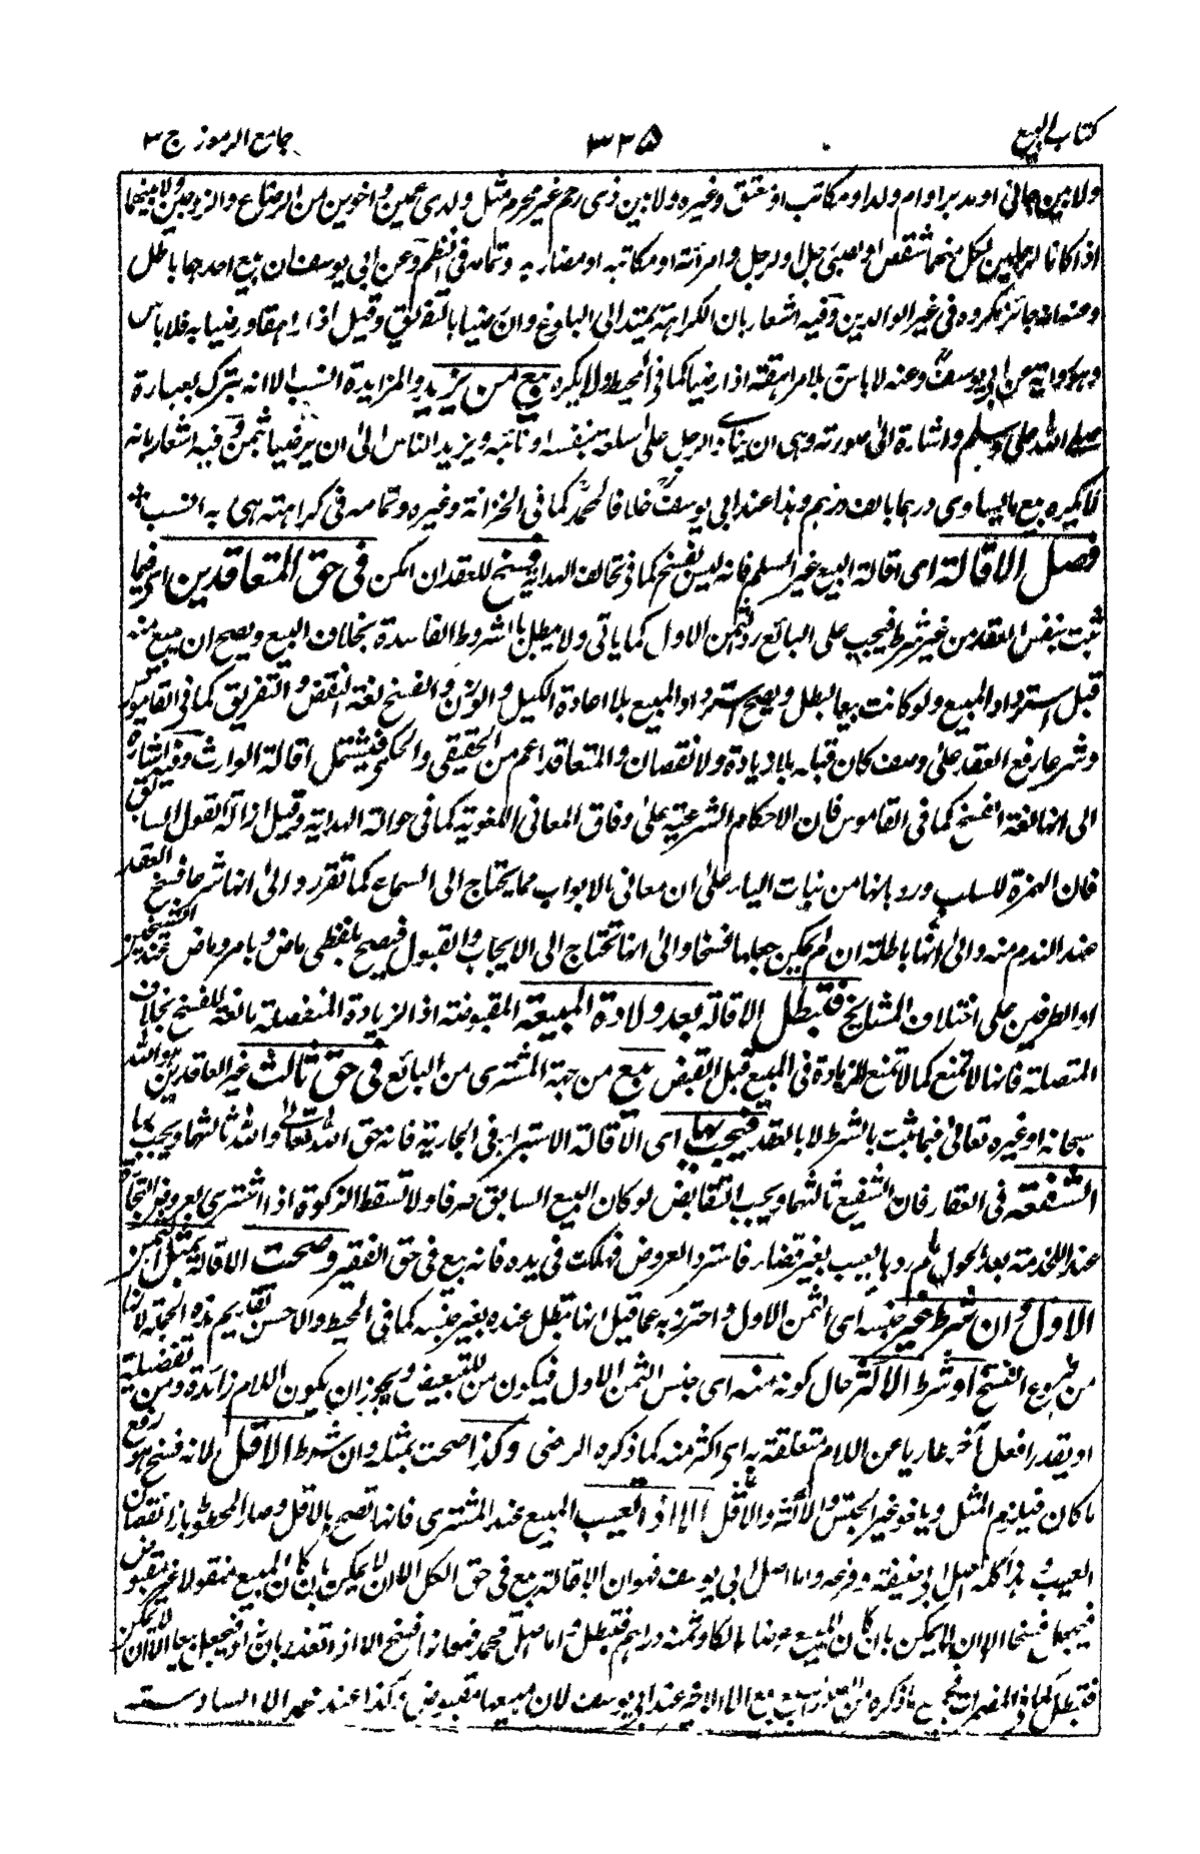 كتاب البيع
٣٢٥
جامع الرموز ج ٣
ولا بين جاني او مدبر او ام ولد او مكاتب او عتق وغيره ولا بين ذى رحم غير محرم مثل ولدى عمين واخوين من الرضاع والزوجين ولا بينهما
اذا كانا لرجلين لكل منهما شقص او لصبى رجل او لرجل وامرأته او مكاتبه او مضاربه وتمامه فى النظم وعن ابى يوسف ان بيع احدهما باطل
وعنه انه جائز مكروه فى غير الوالدين وفيه اشعار بان الكراهة يمتد الى البلوغ وان رضيا بالتفريق وقيل اذا راهقا ورضيا به فلا باس
وهو رواية عن ابى يوسف وعنه لا باس بالمراهقة اذا رضيا كما فى المحيط ولا يكره بيع من يزيد والمزايدة انسب الا انه تبرك بعبارة
صلى الله عليه وسلم واشارة الى صورته وهى ان ينادى الرجل على سلعة بنفسه او نائبه ويزيد الناس الى ان يرضيا بثمن وفيه اشعار بانه
لا يكره بيع ما يساوى درهما بالف درهم وهذا عند ابى يوسف خلافا لمحمد كما فى الخزانة وغيره وتمامه فى كراهته هى به انسب
فصل الاقالة اى اقالة البيع غير السلم فانه ليس بفسخ كما فى تحالف الهداية فسخ للعقد ان امكن فى حق المتعاقدين اى فيما
ثبت بنفس العقد من غير شرط فيجب على البائع رد الثمن الاول كما ياتى ولا يبطل بالشروط الفاسدة بخلاف البيع ويصح ان يبيع منه
قبل استرداد المبيع ولو كانت بيعا لبطل ويصح استرداد المبيع بلا اعادة الكيل والوزن والفسخ لغة النقض والتفريق كما فى القاموس
وشرعا رفع العقد على وصف كان قبله بلا زيادة ولا نقصان والمتعاقد اعم من الحقيقى والحكمى فيشتمل اقالة الوارث وفيه اشارة
الى انها لغة الفسخ كما فى القاموس فان الاحكام الشرعية على وفاق المعانى اللغوية كما فى حوالة الهداية وقيل ازالة القول السابق
فان الهمزة للسلب ورد بانها من بنات الياء على ان معانى الابواب مما يحتاج الى السماع كما تقرر والى انها شرعا فسخ العقد
عند الندم منه والى انها باطلة ان لم يمكن جعلها فسخا والى انها تحتاج الى الايجاب والقبول فيصح بلفظى ماض وبامر وماض عند الشيخين
او الطرفين على اختلاف المشايخ فتبطل الاقالة بعد ولادة المبيعة المقبوضة اذ الزيادة المنفصلة مانعة للفسخ بخلاف
المتصلة فانها لا تمنع كما لا تمنع الزيادة فى المبيع قبل القبض بيع من جهة المشترى من البائع فى حق ثالث غير العاقدين هو الله
سبحانه او غيره تعالى فيما ثبت بالشرط لا بالعقد فيجب بها اى الاقالة الاستبراء فى الجارية فانه حق الله تعالى والله ثالثهما ويجب بها
الشفعة فى العقار فان الشفيع ثالثهما ويجب التقابض لو كان البيع السابق صرفا ولا تسقط الزكوة اذا اشترى بعروض التجارة
عبدا للخدمة بعد الحول ثم رد بالعيب بغير قضاء فاسترد العروض فهلكت فى يده فانه بيع فى حق الفقير وصحت الاقالة بمثل الثمن
الاول وان شرط غير جنسه اى الثمن الاول واحترز به عما قيل انها تبطل عنده بغير جنسه كما فى المحيط والاحسن تقديم هذه الجملة لانها
من فروع الفسخ او شرط الاكثر حال كونه منه اى جنس الثمن الاول فيكون من للتبعيض ويجوز ان يكون اللام زائدة ومن تفضيلية
او يقدر افعل آخر عاريا عن اللام متعلقة به اى اكثر منه كما ذكره الرضى وكذا صحت بمثله وان شرط الاقل لانه فسخ هو رفع
ما كان فيلزم المثل ويلغو غير الجنس والاكثر والاقل الا اذا تعيب المبيع عند المشترى فانها تصح بالاقل وصار المحطوط بازاء نقصان
العيب هذا كله اصل ابى حنيفة وفرعه واما اصل ابى يوسف فهو ان الاقالة بيع فى حق الكل الا ان لا يمكن بان كان المبيع منقولا غير مقبوض
فيجعل فسخا الا ان لا يمكن بان كان المبيع عرضا هالكا وثمنه دراهم فتبطل واما اصل محمد فهو انها فسخ الا اذا تعذر بان ولد فيجعل بيعا الا ان لا يمكن
فتبطل
ما ذكره من
عند ابى يوسف لان مبيعها مقبوض وكذا عند محمد الا السادسة